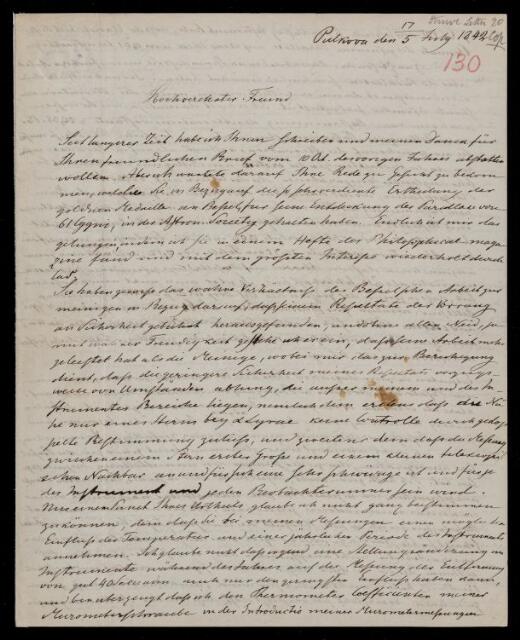 Struve Letter 20
Pulkova den 17/5 July 1842
130
Hochverehrter Freund
Seit längerer Zeit habe ich Ihnen schreiben und meinen Dank für
Ihren freundlichen Brief vom 10 Oct. des vorigen Jahres abstatten
wollen. Aber ich wartete darauf Ihre Rede zu
welche Sie in Bezug auf die Ertheilung der
goldnen Medaille an Bessel für seine Entdeckung der Parallaxe von
61 Cygni, in der Astron. Society gehalten haben. Endlich ist mir das
gelungen, indem ich sie in einem Hefte des Philosophical maga
zine fand und mit dem größten Interesse wiederholt durch
las.
Sie haben das wahre Verhältniß der Besselschen Arbeit zur
meinigen in Bezug darauf, daß seinem Resultate der Vorrang
an Sicherheit gebührt herausgefunden, und ohne allen Neid, ja
mit wahrer Freudigkeit ich an, daß seine Arbeit mehr
geleistet hat als die Meinige, wobei mir das zur Beruhigung
dient, daß die geringere Sicherheit meines Resultats vorzugs
weise von Umständen abhing, die außer meinem und des In
struments Bereiche liegen, nemlich dem erstens daß die Nä
he nur eines Sterns bey α Lyrae keine Controlle durch dop
pelte Bestimmung zuließ, und zweitens dem daß die Messung
zwischen einem Stern erster Größe und einem kleinen telescopi
schen Nachbar an und für sich eine sehr schwierige ist und für je
des Instrument und jeden Beobachter immer sein wird.
Nur einem Ihres Urtheils, glaube ich nicht ganz beistimmen
zu können, dem daß Sie bei meinen Messungen einen möglichen
Einfluß der Temperatur und einer jährlichen Periode des Instruments
annehmen. Ich glaube nicht daß irgend eine Stellungsänderung im
Instrumente während des Jahres auf die Messung der Entfernung
von gut 40 Secunden auch nur den geringsten Einfluß haben kann,
und bin überzeugt daß ich den Thermometer Coefficienten meiner
Micrometerschraube in der Introductio meiner Micrometermessungen